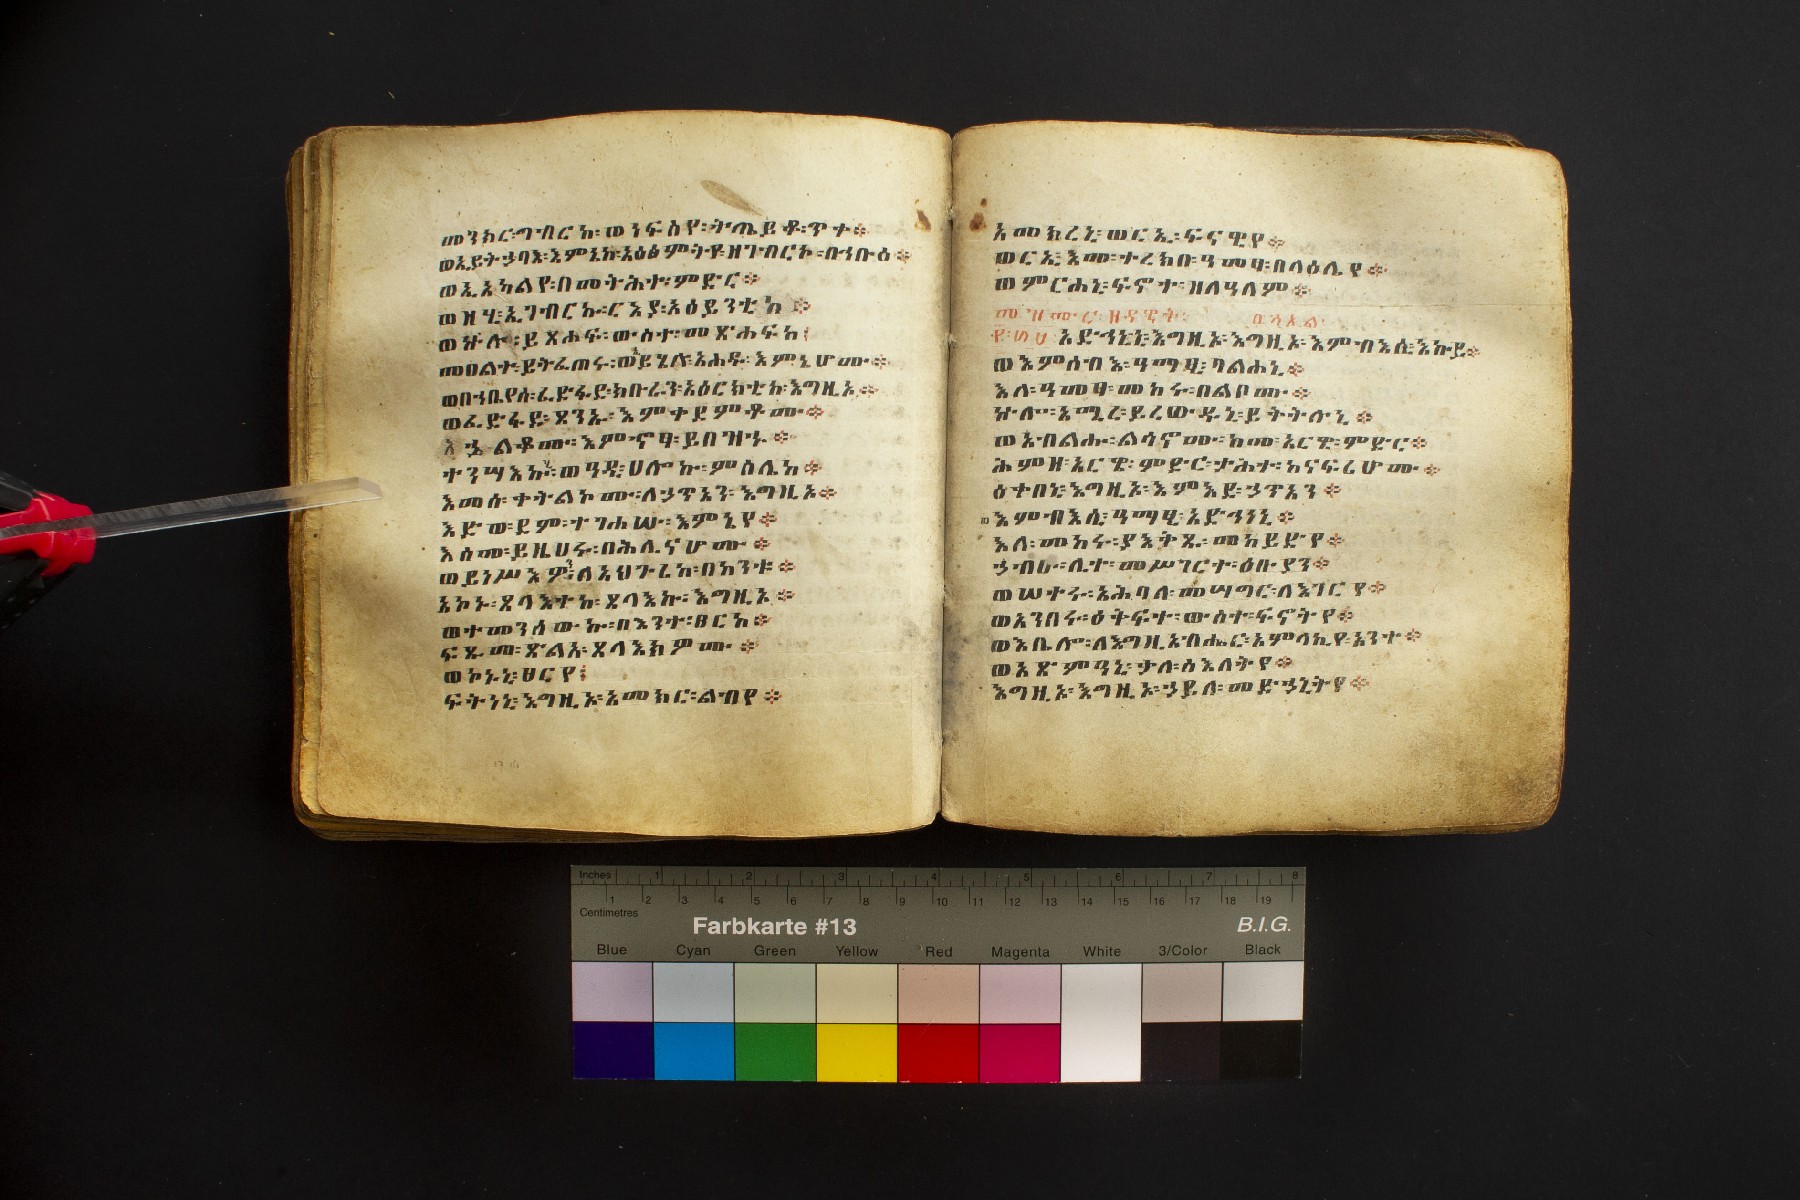 መንክር፡ግብርከ፡ወነፍስየ፡ትጤይቆ፡ጥቀ፨
ወኢይትኃባእ፡እምኔከ፡አዕፅምትየ፡ዘገብርኮ፡በኅቡዕ፨
ወኢአካልየ፡በመትሕተ፡ምድር፨
ወዘሂ፡ኢገብርኩ፡ርእያ፡አዕይንቲከ፨
ወኵሉ፡ይጸሐፍ፡ውስተ፡መጽሐፍከ፤
መዐልተ፡ይትፈጠሩ፡ወኢይሄሉ፡አሐዱ፡እምኔሆሙ፨
ወበኀቤየሰ፡ፈድፋደ፡ክቡራን፡አዕርክቲከ፡እግዚኦ፨
ወፈድፋደ፡ጸንኡ፡እምቀደምቶሙ፨
እኌልቆሙ፡እምኖፃ፡ይበዝኁ፨
ተንሣእኩ፡ወዓዲ፡ሀሎኩ፡ምስሌከ፨
እመሰ፡ቀተልኮሙ፡ለኃጥኣን፡እግዚኦ፨
እድወ፡ደም፡ተገሐሡ፡እምኔየ፨
እስመ፡ይዜሀሩ፡በሕሊናሆሙ፨
ወይነሥእዎ፡ለአህጉሪከ፡በከንቱ፨
አኮኑ፡ጸላእተከ፡ጸላእኩ፡እግዚኦ፨
ወተመንሰውኩ፡በእንተ፡ፀርከ፨
ፍጹመ፡ጽልአ፡ጸላእክዎሙ፨
ወኮኑኒ፡ፀርየ፤
ፍትነኒ፡እግዚኦ፡አመክር፡ልብየ፨
አመክረኒ፡ወርኢ፡ፍናዊየ፨
ወርኢ፡እመ፡ተረክበ፡ዓመፃ፡በላዕሌየ፨
ወምርሐኒ፡ፍኖተ፡ዘለዓለም፨
መዝሙር፡ዘዳዊት፡
አድኅነኒ፡እግዚኦ፡እግዚኦ፡እምብእሲ፡እኩይ፨
ወእምሰብእ፡ዓማፂ፡ባልሐኒ፨
እለ፡ዓመፃ፡መከሩ፡በልቦሙ፨
ኵሎ፡አሚረ፡ይረውዱኒ፡ይትትሉኒ፨
ወአብልሑ፡ልሳኖሙ፡ከመ፡አርዌ፡ምድር፨
ሕምዘ፡አርዌ፡ምድር፡ታሕተ፡ከናፍሪሆሙ፨
ዕቀበኒ፡እግዚኦ፡እምእደ፡ኃጥኣን፨
እምብእሲ፡ዓማፂ፡አድኅነኒ፨
እለ፡መከሩ፡ያእትጹ፡መከይድየ፨
ኃብኡ፡ሊተ፡መሥገርተ፡ዕቡያን፨
ወሠተሩ፡አሕባለ፡መሣግር፡ለእገርየ፨
ወአንበሩ፡ዕትፍተ፡ውስተ፡ፍኖትየ፨
ወእቤሎ፡ለእግዚአብሔር፡አምላኪየ፡አንተ፨
ወአጽምዓኒ፡ቃለ፡ስእለትየ፨
እግዚኦ፡እግዚኦ፡ኃይለ፡መድኃኒትየ፨
Inches 1 2 3 4 5 6 7 8
1 2 3 4 5 6 7 8 9 10 11 12 13 14 15 16 17 18 19
Centimetres
Farbkarte #13 B.I.G.
Blue Cyan Green Yellow Red Magenta White 3/Color Black